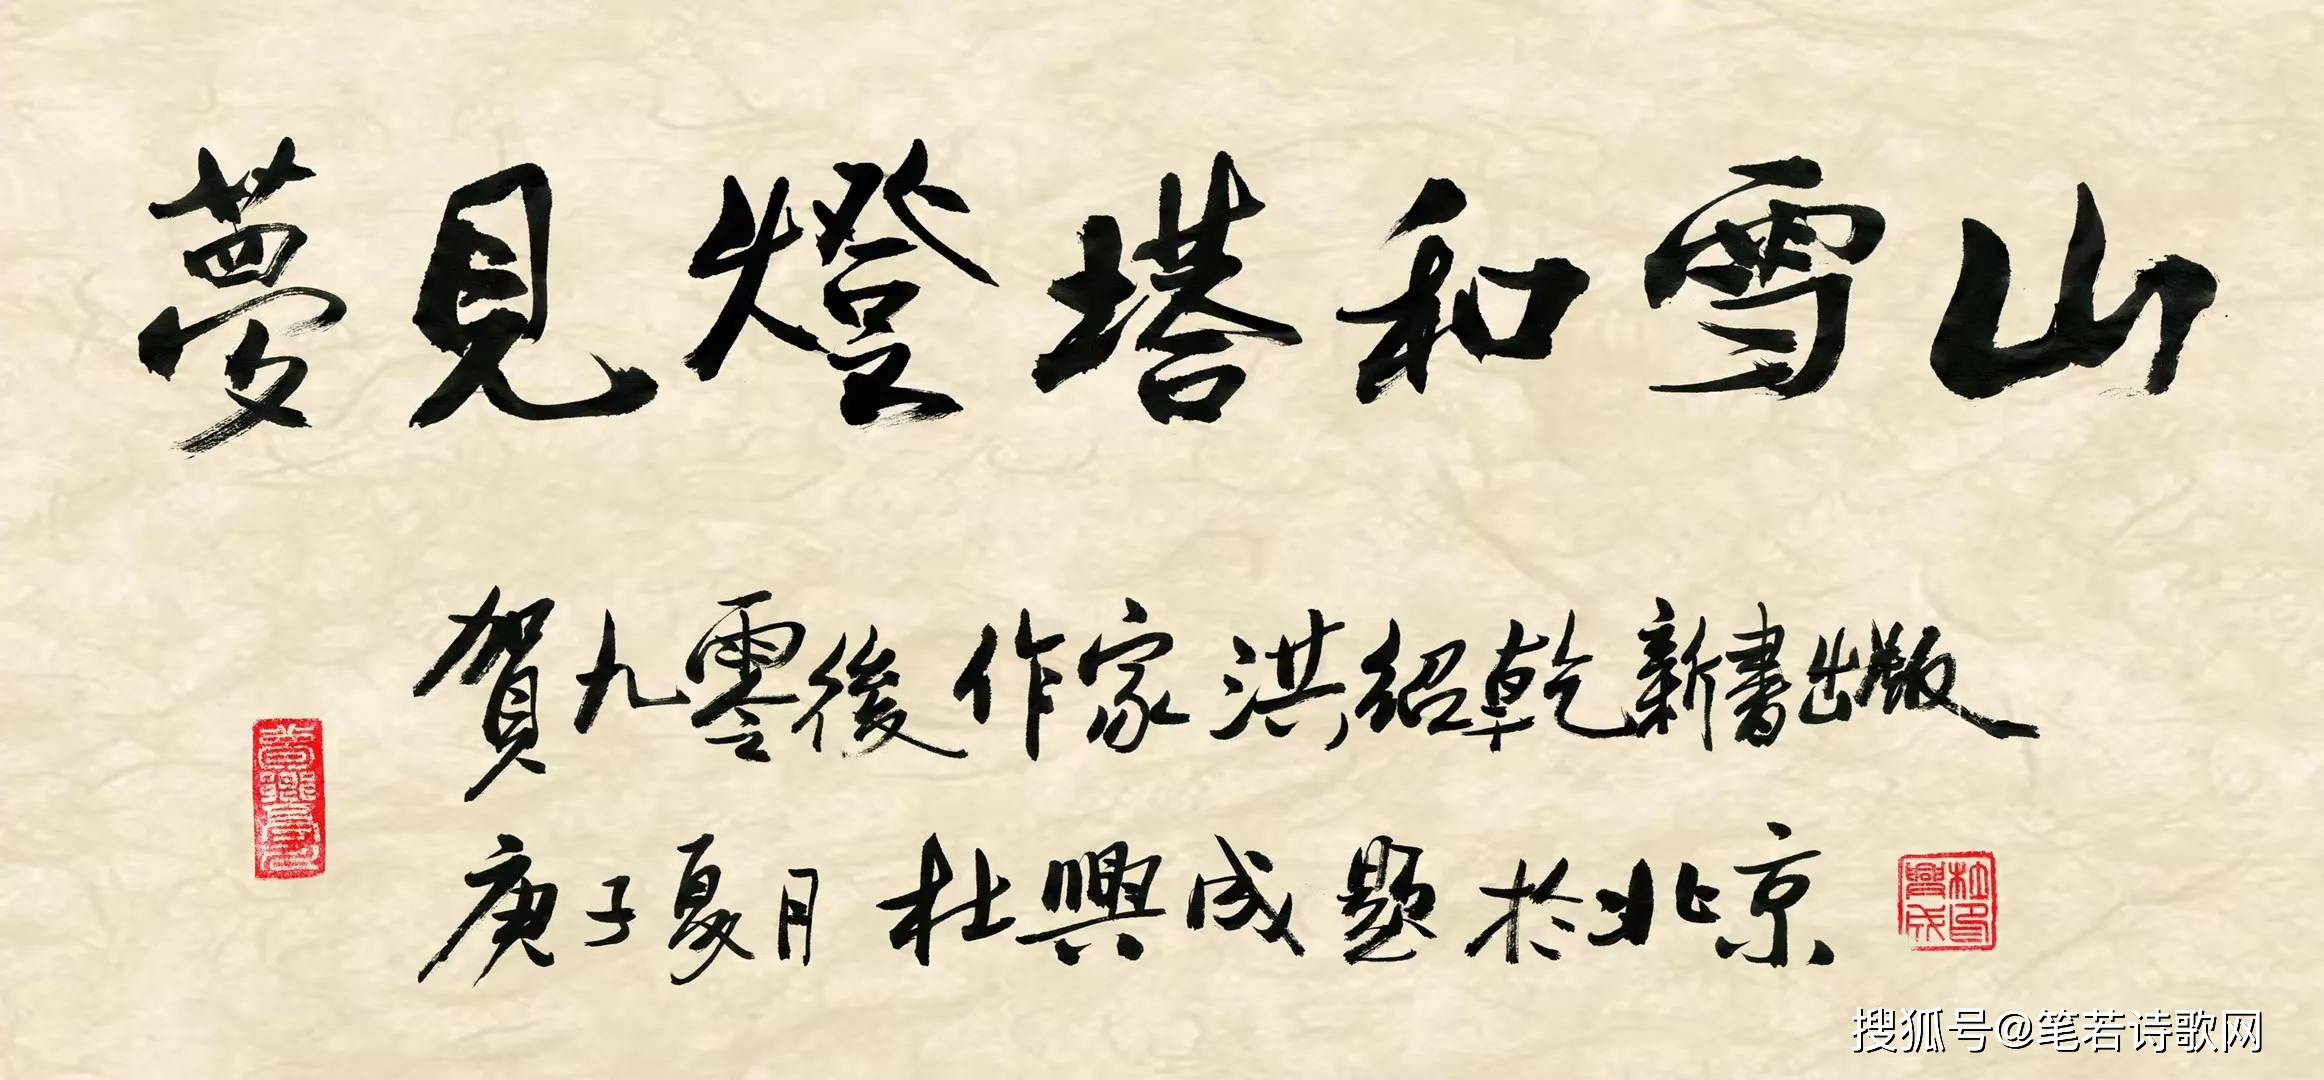 夢見燈塔和雪山
賀九零後作家洪紹乾新書出版
庚子夏月杜興成题於北京
杜興成印
搜狐号@笔若诗歌网